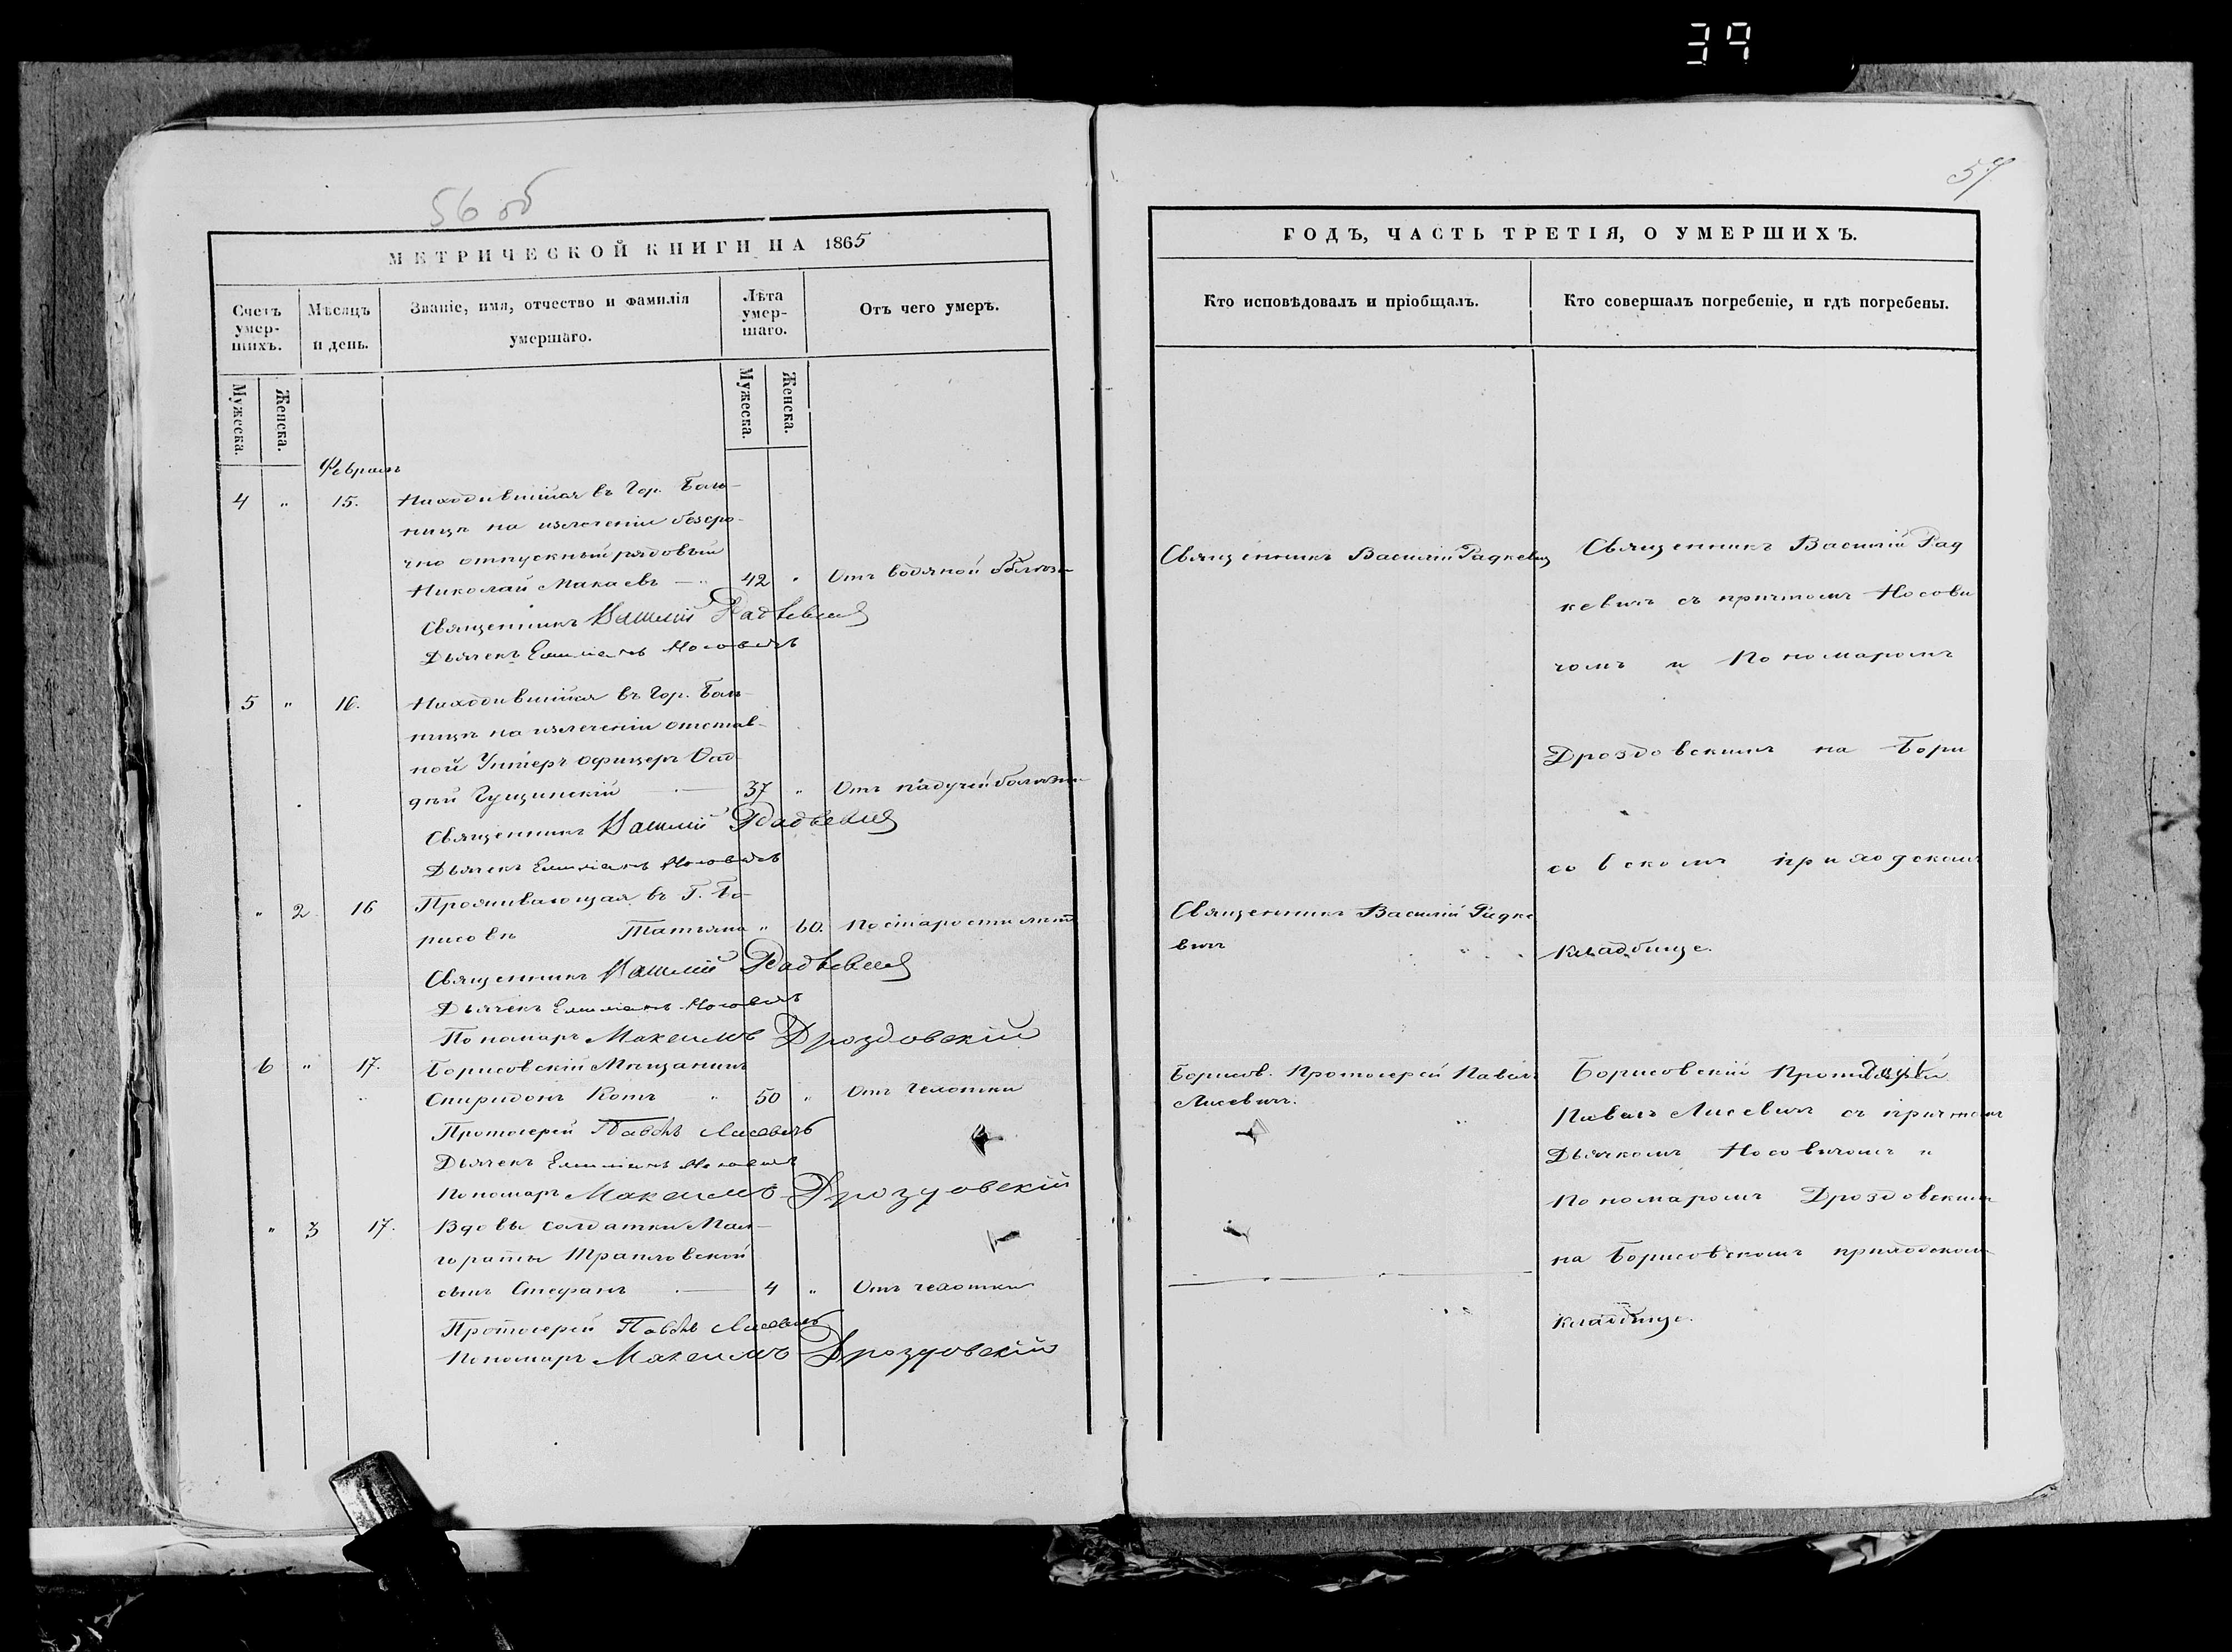 39
56 об
МЕТРИЧЕСКОЙ КНИГИ НА 1865
Счетъ умер-шихъ.
Мѣсяцъ и день.
Званіе, имя, отчество и фамилія умершаго.
Лѣта умер-шаго.
Отъ чего умеръ.
Мужеска.
Женска.
Мужеска.
Женска.
Февраль
4 " 15. Находившійся въ Гор. Боль-
ницѣ на излеченіи безсро-
чно отпускный рядовый
Николай Макаевъ — " 42 " Отъ водяной болѣзни
Священникъ Василій Радкевичъ
Дьячекъ Емиліанъ Носовичъ
5 " 16. Находившійся въ Гор. Боль-
ницѣ на излеченіи отстав-
ной Унтеръ офицеръ
Гущинскій — 37 " Отъ падучей болѣзни
Священникъ Василій Радкевичъ
Дьячекъ Емиліанъ Носовичъ
" 2 16 Проживающая въ Г. Бо-
рисовѣ Татьяна " 60. По старости лѣтъ
Священникъ Василій Радкевичъ
Дьячекъ Емиліанъ Носовичъ
Пономарь Максимъ Дроздовскій
6 " 17. Борисовскій Мѣщанинъ
Спиридонъ Котъ " 50 " Отъ Чехотки
Протоіерей Павелъ Лисевичъ
Дьячекъ Емиліанъ Носовичъ
Пономарь Максимъ Дроздовскій
" 3 17. Вдовы солдатки Мал-
гораты
сынъ Стефанъ — 4 " Отъ чехотки
Протоіерей Павелъ Лисевичъ
Пономарь Максимъ Дроздовскій
57
ГОДЪ, ЧАСТЬ ТРЕТІЯ, О УМЕРШИХЪ.
Кто исповѣдовалъ и пріобщалъ.
Кто совершалъ погребеніе, и гдѣ погребены.
Священникъ Василій Радкевичъ
Священникъ Василій Радке
вичъ
Борисов. Протоіерей Павелъ
Лисевичъ.
Священникъ Василій Рад
кевичъ съ причтомъ Носови
чомъ и Пономаромъ
Дроздовскимъ на Бори
совскомъ приходскомъ
кладбище.
Борисовскій Протоіерей
Павелъ Лисевичъ съ причтомъ
Дьячкомъ Носовичомъ и
Пономаромъ Дроздовскимъ
на Борисовскомъ приходскомъ
кладбище.